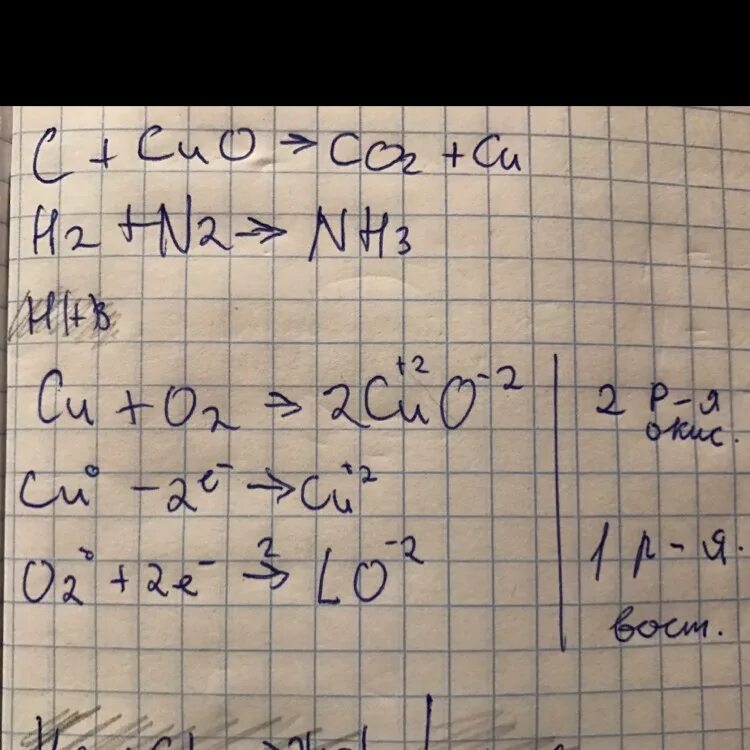 C + CuO → CO2 + Cu
H2 + N2 → NH3
Cu + O2 → 2Cu+2O-2 | 2 р-я окис.
Cu0 - 2e- → Cu+2
O20 + 2e- 2→ LO-2 | 1 р-я. вост.